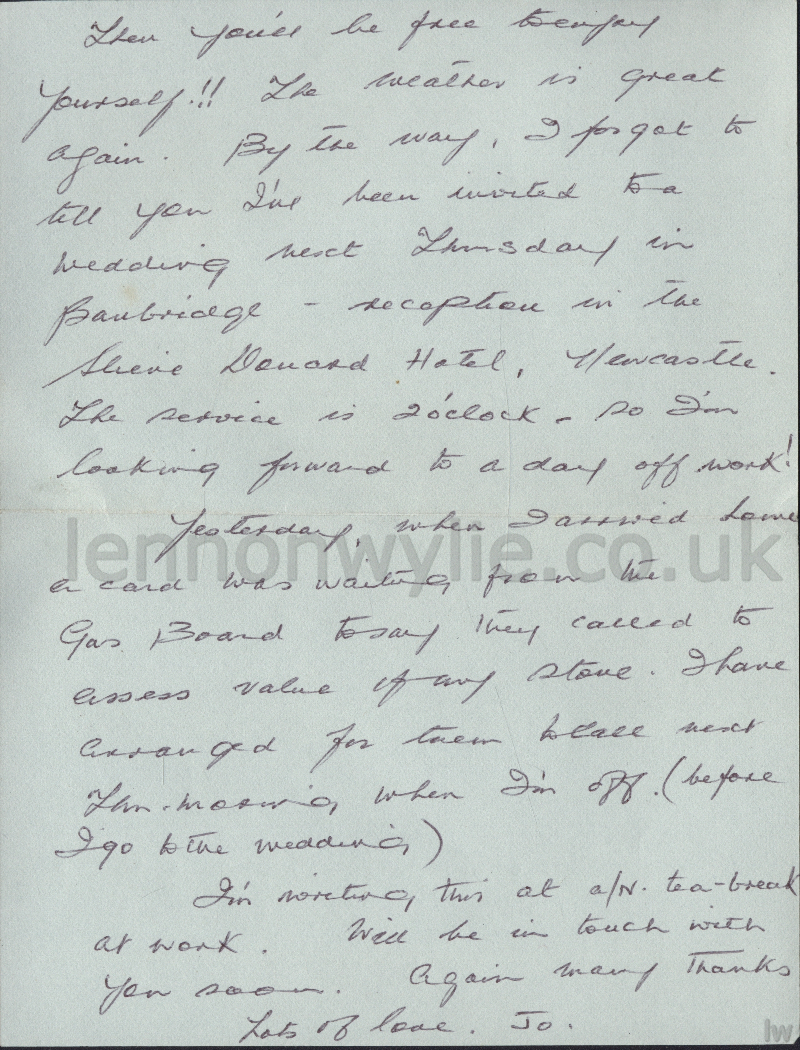 Then you'll be free to enjoy
yourself!! The weather is great
again. By the way, I forgot to
tell you I've been invited to a
wedding next Thursday in
Banbridge - reception in the
Slieve Donard Hotel, Newcastle.
The service is 2 o'clock - so I'm
looking forward to a day off work!
Yesterday, when I arrived home
lennonwylie.co.uk
a card was waiting from the
Gas Board to say they called to
assess value of my stove. I have
arranged for them to call next
Thu. morning when I'm off. (before
I go to the wedding)
I'm writing this at a/N. tea-break
at work. Will be in touch with
you soon. Again many thanks
Lots of love. Jo.
lw